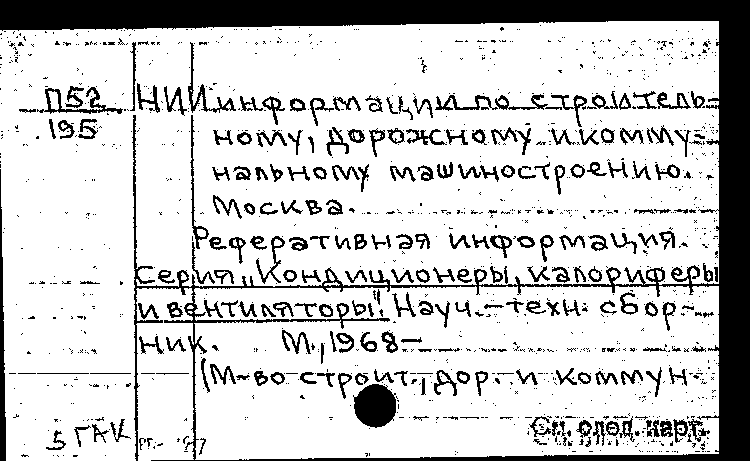 П52 НИИ информации по строитель-
195 ному, дорожному и комму-
нальному машиностроению.
Москва.
Реферативная информация.
Серия „Кондиционеры, калориферы
и вентиляторы". Науч.-техн. сбор-
ник. М., 1968-
(М-во строит., дор. и коммун.
5 ГАК
См. след. карт.